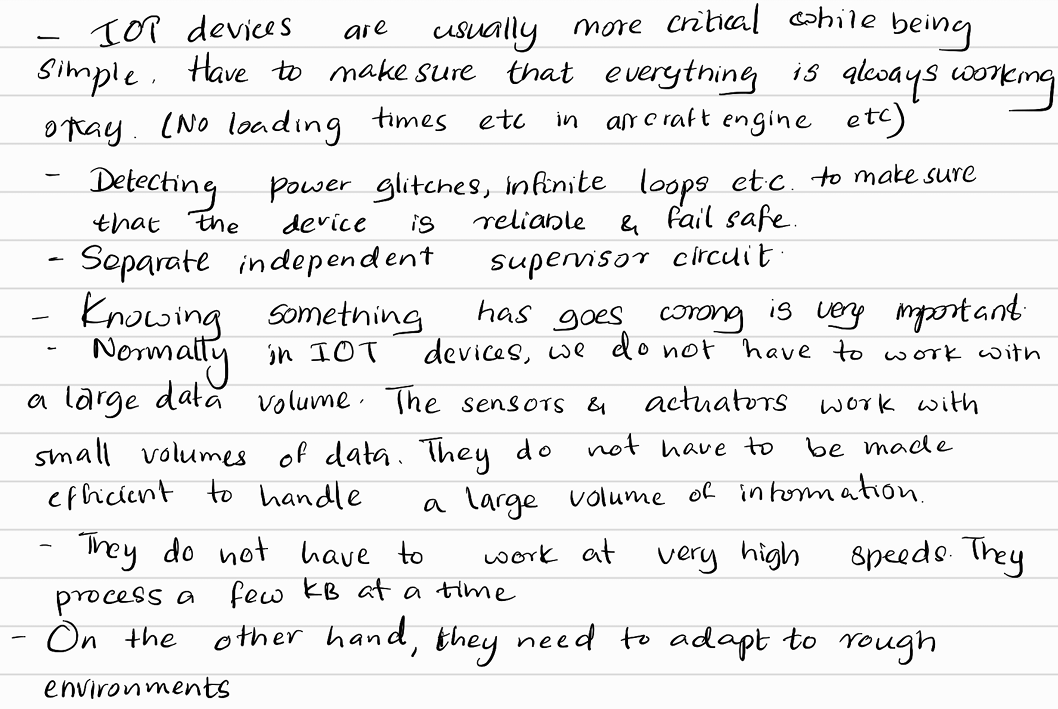 - IOT devices are usually more critical while being
simple. Have to make sure that everything is always working
okay. (No loading times etc in aircraft engine etc)
- Detecting power glitches, infinite loops etc. to make sure
that the device is reliable & fail safe.
- Separate independent supervisor circuit.
- Knowing something has goes wrong is very important.
- Normally in IOT devices, we do not have to work with
a large data volume. The sensors & actuators work with
small volumes of data. They do not have to be made
efficient to handle a large volume of information.
- They do not have to work at very high speeds. They
process a few KB at a time
- On the other hand, they need to adapt to rough
environments